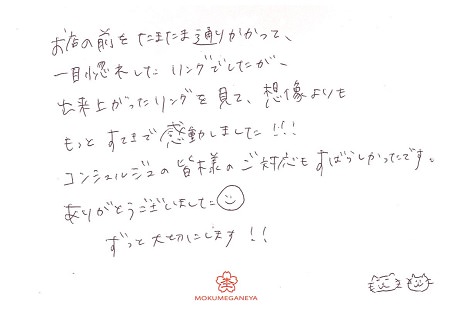 お店の前をたまたま通りかかって、
一目惚れしたリングでしたが、
出来上がったリングを見て、想像よりも
もっとすてきで感動しました!!!
コンシェルジュの皆様のご対応もすばらしかったです。
ありがとうございました
ずっと大切にします!!
MOKUMEGANEYA